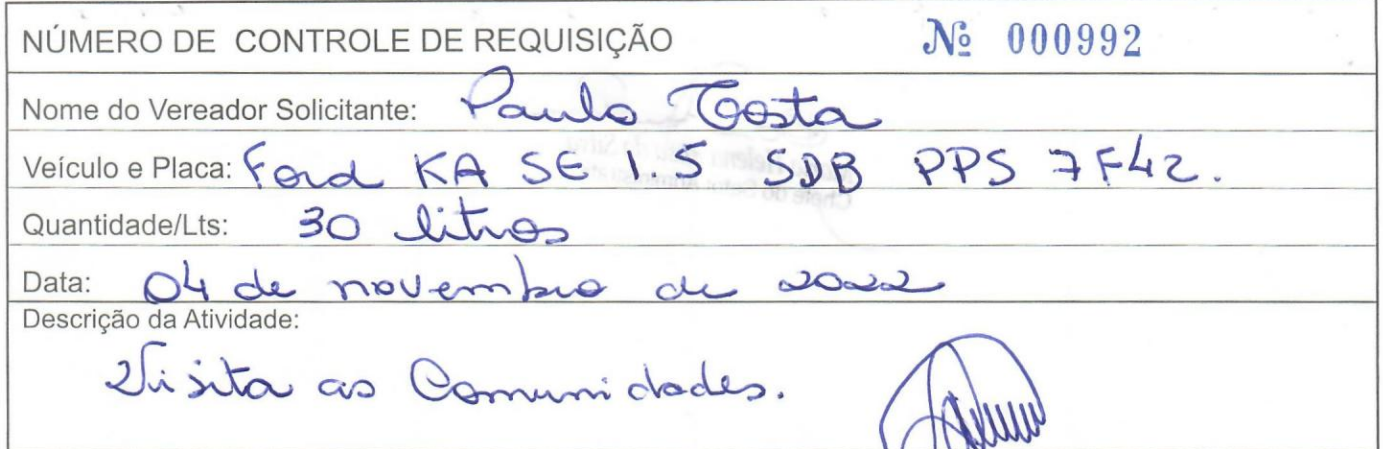 NÚMERO DE CONTROLE DE REQUISIÇÃO Nº 000992
Nome do Vereador Solicitante: Paulo Costa
Veículo e Placa: Ford KA SE 1.5 SDB PPS 7F42.
Quantidade/Lts: 30 litros
Data: 04 de novembro de 2022
Descrição da Atividade:
Visita as Comunidades.